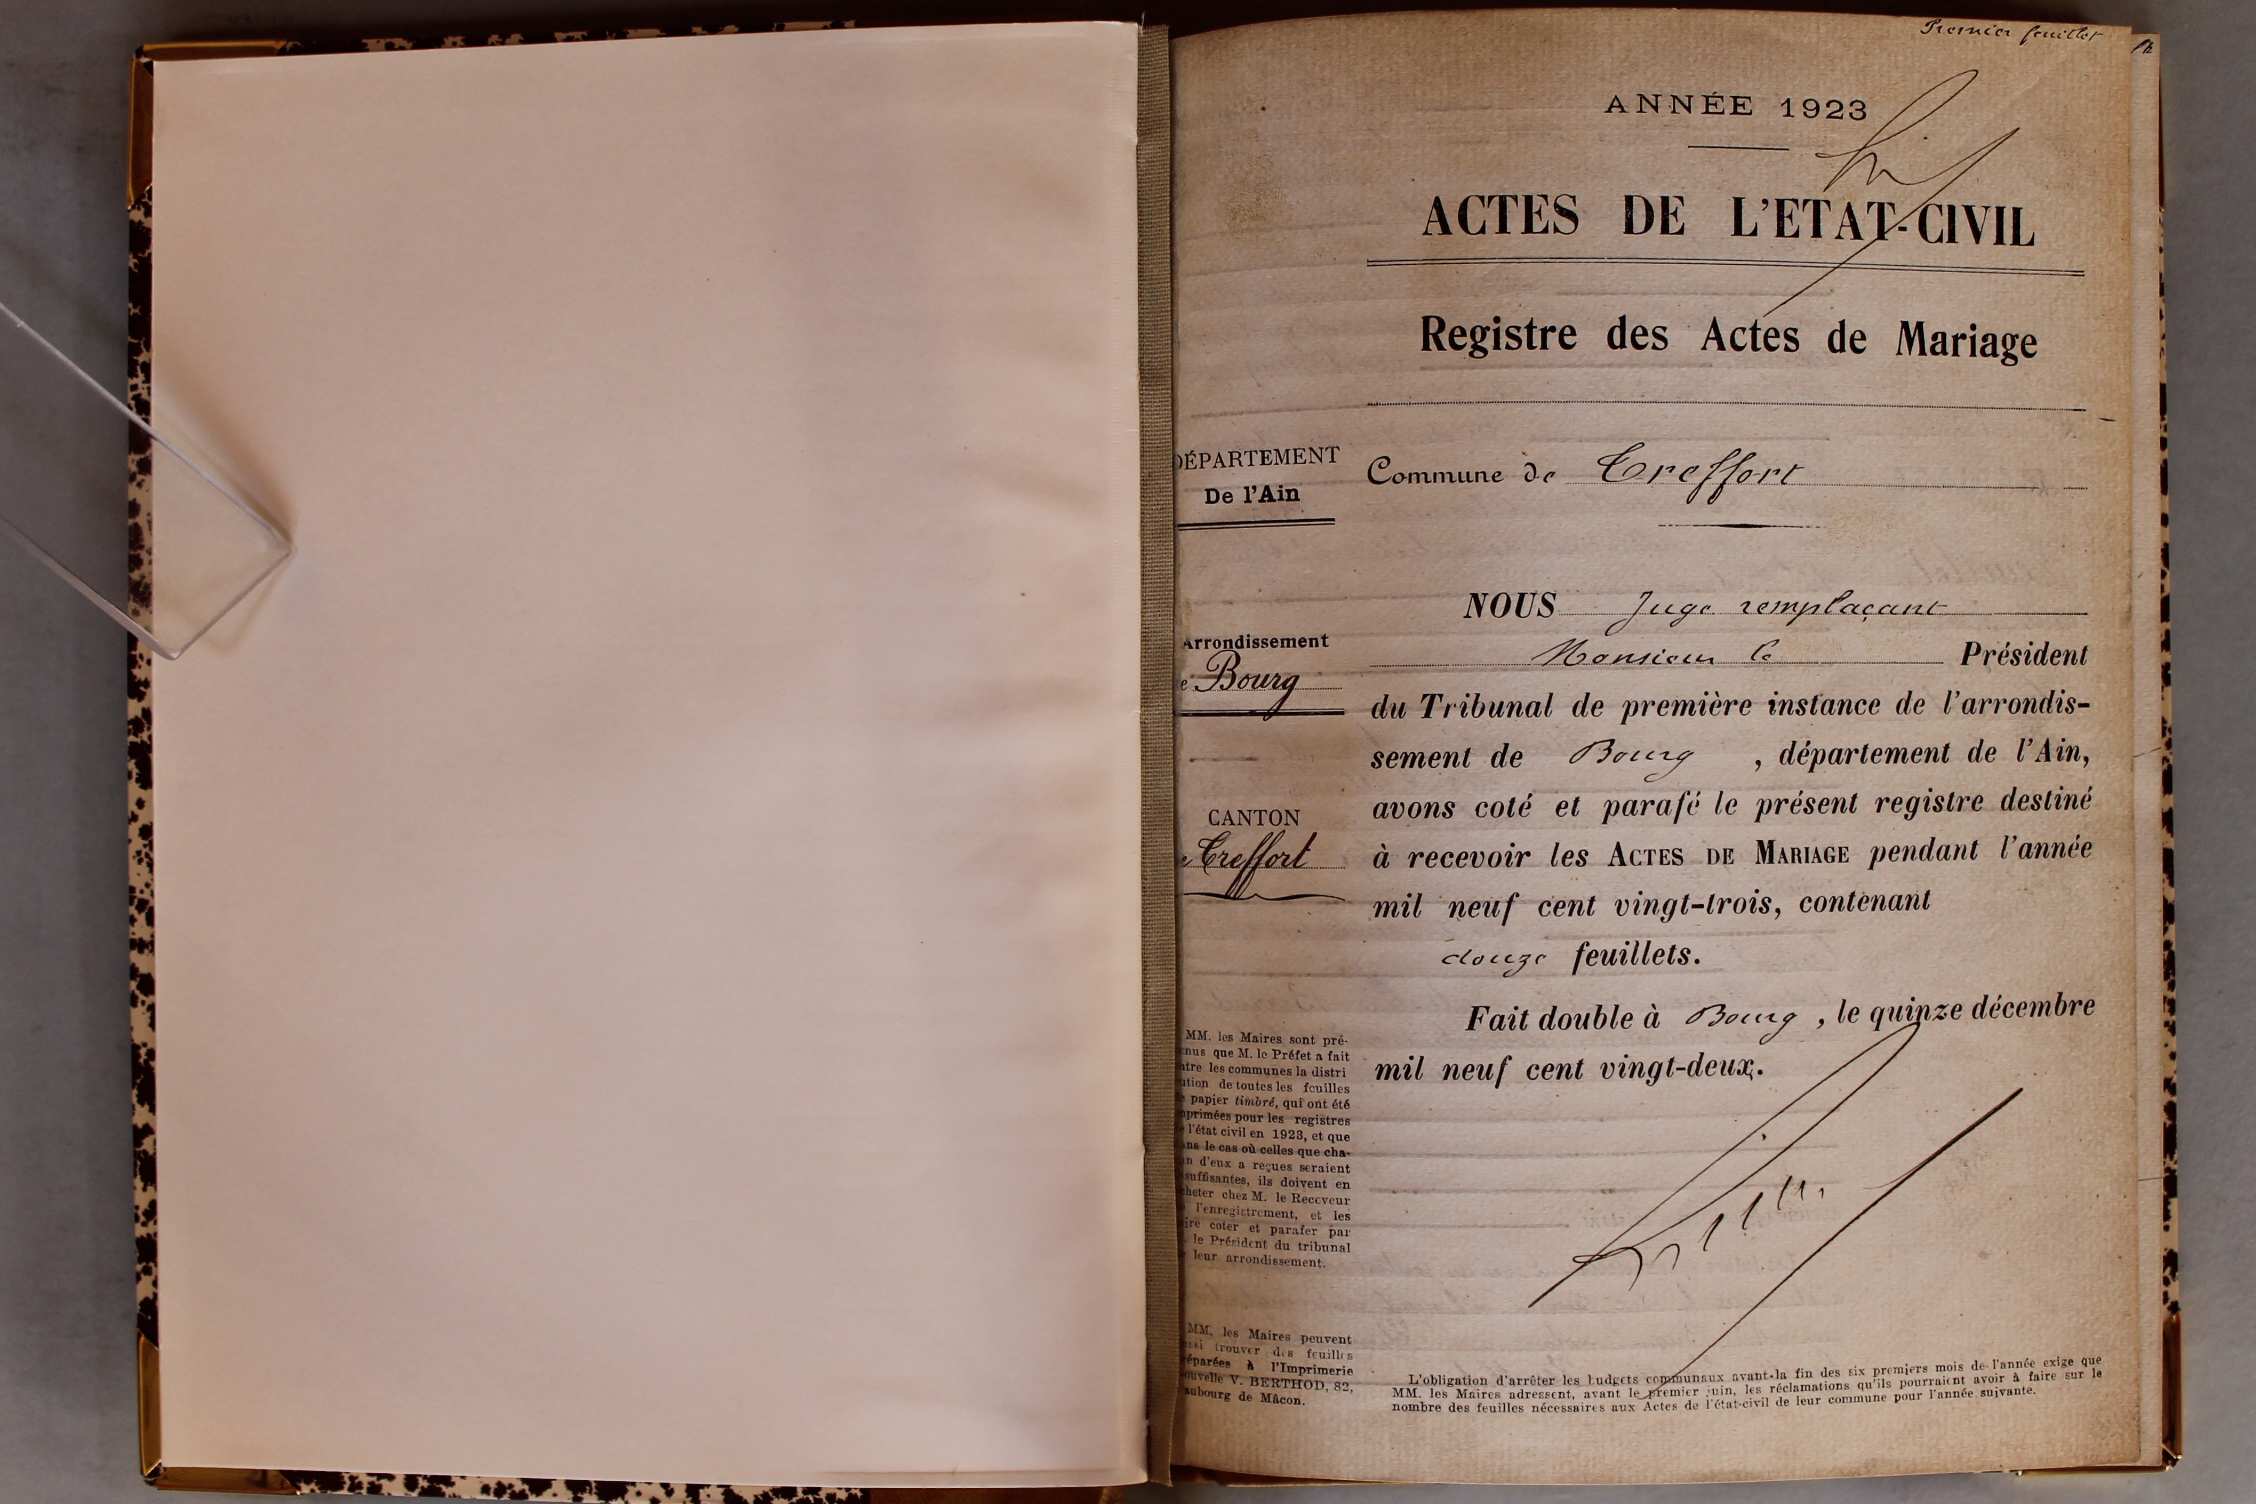 Premier feuillet
ANNÉE 1923
ACTES DE L'ETAT-CIVIL
Registre des Actes de Mariage
DÉPARTEMENT
De l'Ain
Commune de Treffort
Arrondissement
e Bourg
CANTON
e Treffort
NOUS Juge remplaçant
Monsieur le Président
du Tribunal de première instance de l'arrondis-
sement de Bourg , département de l'Ain,
avons coté et parafé le présent registre destiné
à recevoir les ACTES DE MARIAGE pendant l'année
mil neuf cent vingt-trois, contenant
douze feuillets.
Fait double à Bourg , le quinze décembre
mil neuf cent vingt-deux.
MM. les Maires sont pré-
nus que M. le Préfet a fait
ntre les communes la distri
ution de toutes les feuilles
e papier timbré, qui ont été
mprimées pour les registres
e l'état civil en 1923, et que
ans le cas où celles que cha-
un d'eux a reçues seraient
suffisantes, ils doivent en
cheter chez M. le Receveur
l'enregistrement, et les
ire coter et parafer par
le Président du tribunal
e leur arrondissement.
MM. les Maires peuvent
ussi trouver des feuilles
éparées à l'Imprimerie
ouvelle V. BERTHOD, 82,
aubourg de Mâcon.
L'obligation d'arrêter les budgets communaux avant la fin des six premiers mois de l'année exige que
MM. les Maires adressent, avant le premier juin, les réclamations qu'ils pourraient avoir à faire sur le
nombre des feuilles nécessaires aux Actes de l'état-civil de leur commune pour l'année suivante.